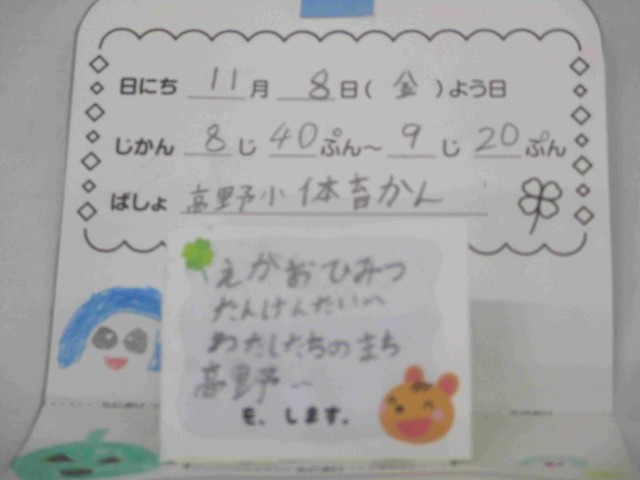 日にち 11月 8日(金)よう日
じかん 8じ 40ぷん～9じ 20ぷん
ばしょ 高野小体育かん
えがおひみつ
たんけんたい～
わたしたちのまち
高野～
を、します。